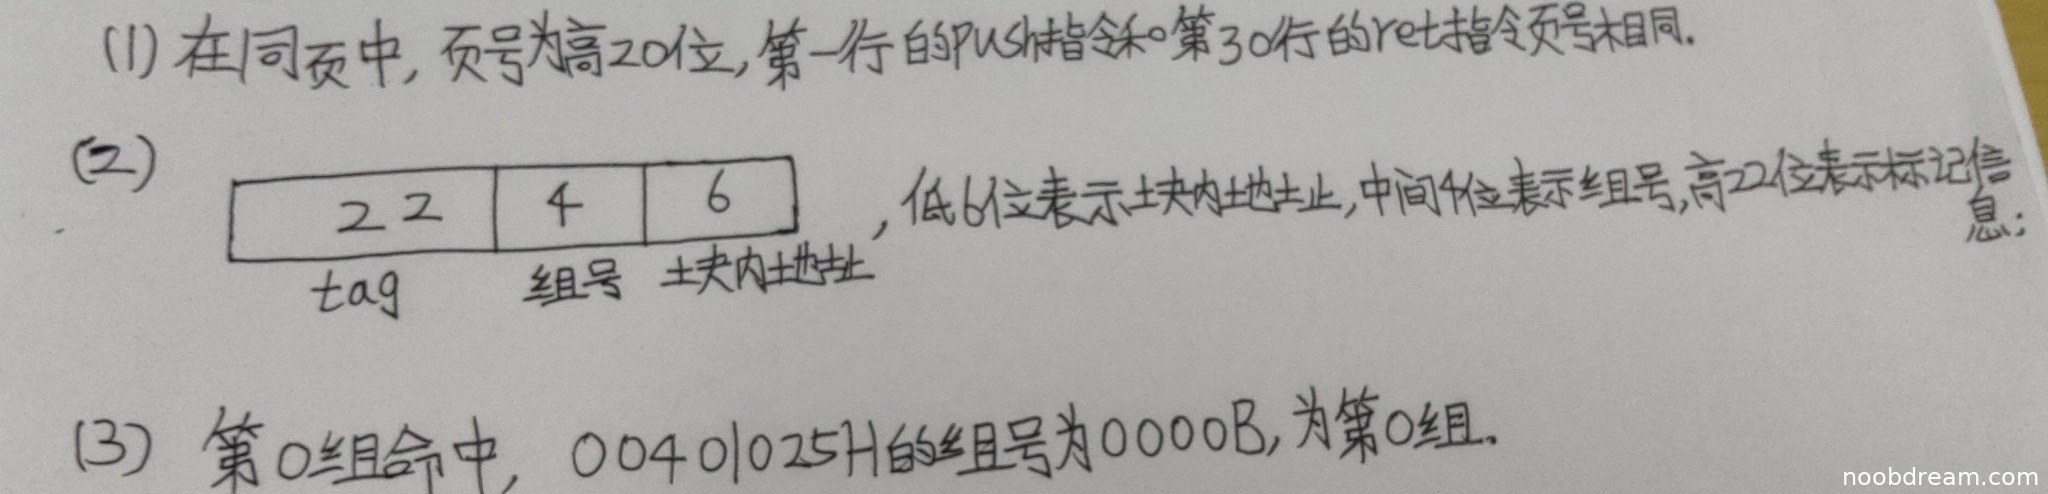 (1) 在同页中, 页号为高20位, 第一行的push指令和第30行的ret指令页号相同.
(2)
22 4 6
tag 组号 块内地址
, 低6位表示块内地址, 中间4位表示组号, 高22位表示标记信
息;
(3) 第0组命中, 00401025H的组号为0000B, 为第0组.
noobdream.com